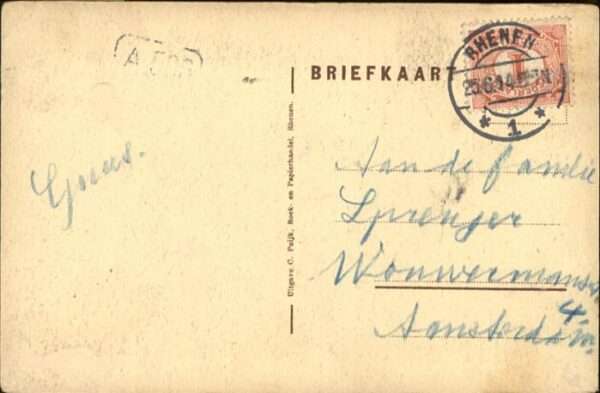 BRIEFKAART
RHENEN
25.6.14
1
Uitgave C. Puijk, Boek- en Papierhandel, Rhenen.
Aan de familie
Sprenger
Wouwermanstr
4
Amsterdam